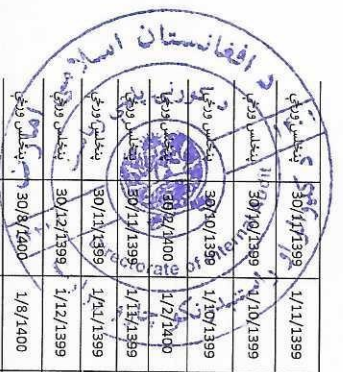 پنځلس ورځې 30/11/1399 1/11/1399
پنځلس ورځې 30/10/1399 1/10/1399
پنځلس ورځې 30/10/1399 1/10/1399
پنځلس ورځې 30/2/1400 1/2/1400
پنځلس ورځې 30/11/1399 1/11/1399
پنځلس ورځې 30/11/1399 1/11/1399
پنځلس ورځې 30/12/1399 1/12/1399
پنځلس ورځې 30/8/1400 1/8/1400
د افغانستان اسلامي
Directorate of Internal